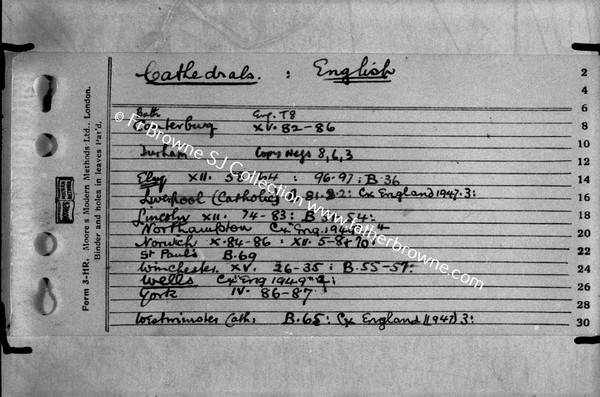 Cathedrals. : English
Bath Eng. T8
Canterbury XV. 82-86
Durham Copy Negs 8, 6, 3
Ely XII. : 96-97 : B.36
Liverpool (Catholic) : Cx England 1947. 3 :
Lincoln XII. 74-83 : B
Northampton Cx Eng. 194
Norwich X. 84-86 : XII. 5-8 + 70
St Paul's B.69
Winchester XV. 26-35 : B.55-57 :
Wells Cx Eng 1949
York IV. 86-87
Westminster Cath. B.65 : Cx England (1947) 3 :
2
4
6
8
10
12
14
16
18
20
22
24
26
28
30
Form 3-HR. Moore's Modern Methods Ltd., London.
Binder and holes in leaves Pat'd.
© Fr Browne SJ Collection www.fatherbrowne.com